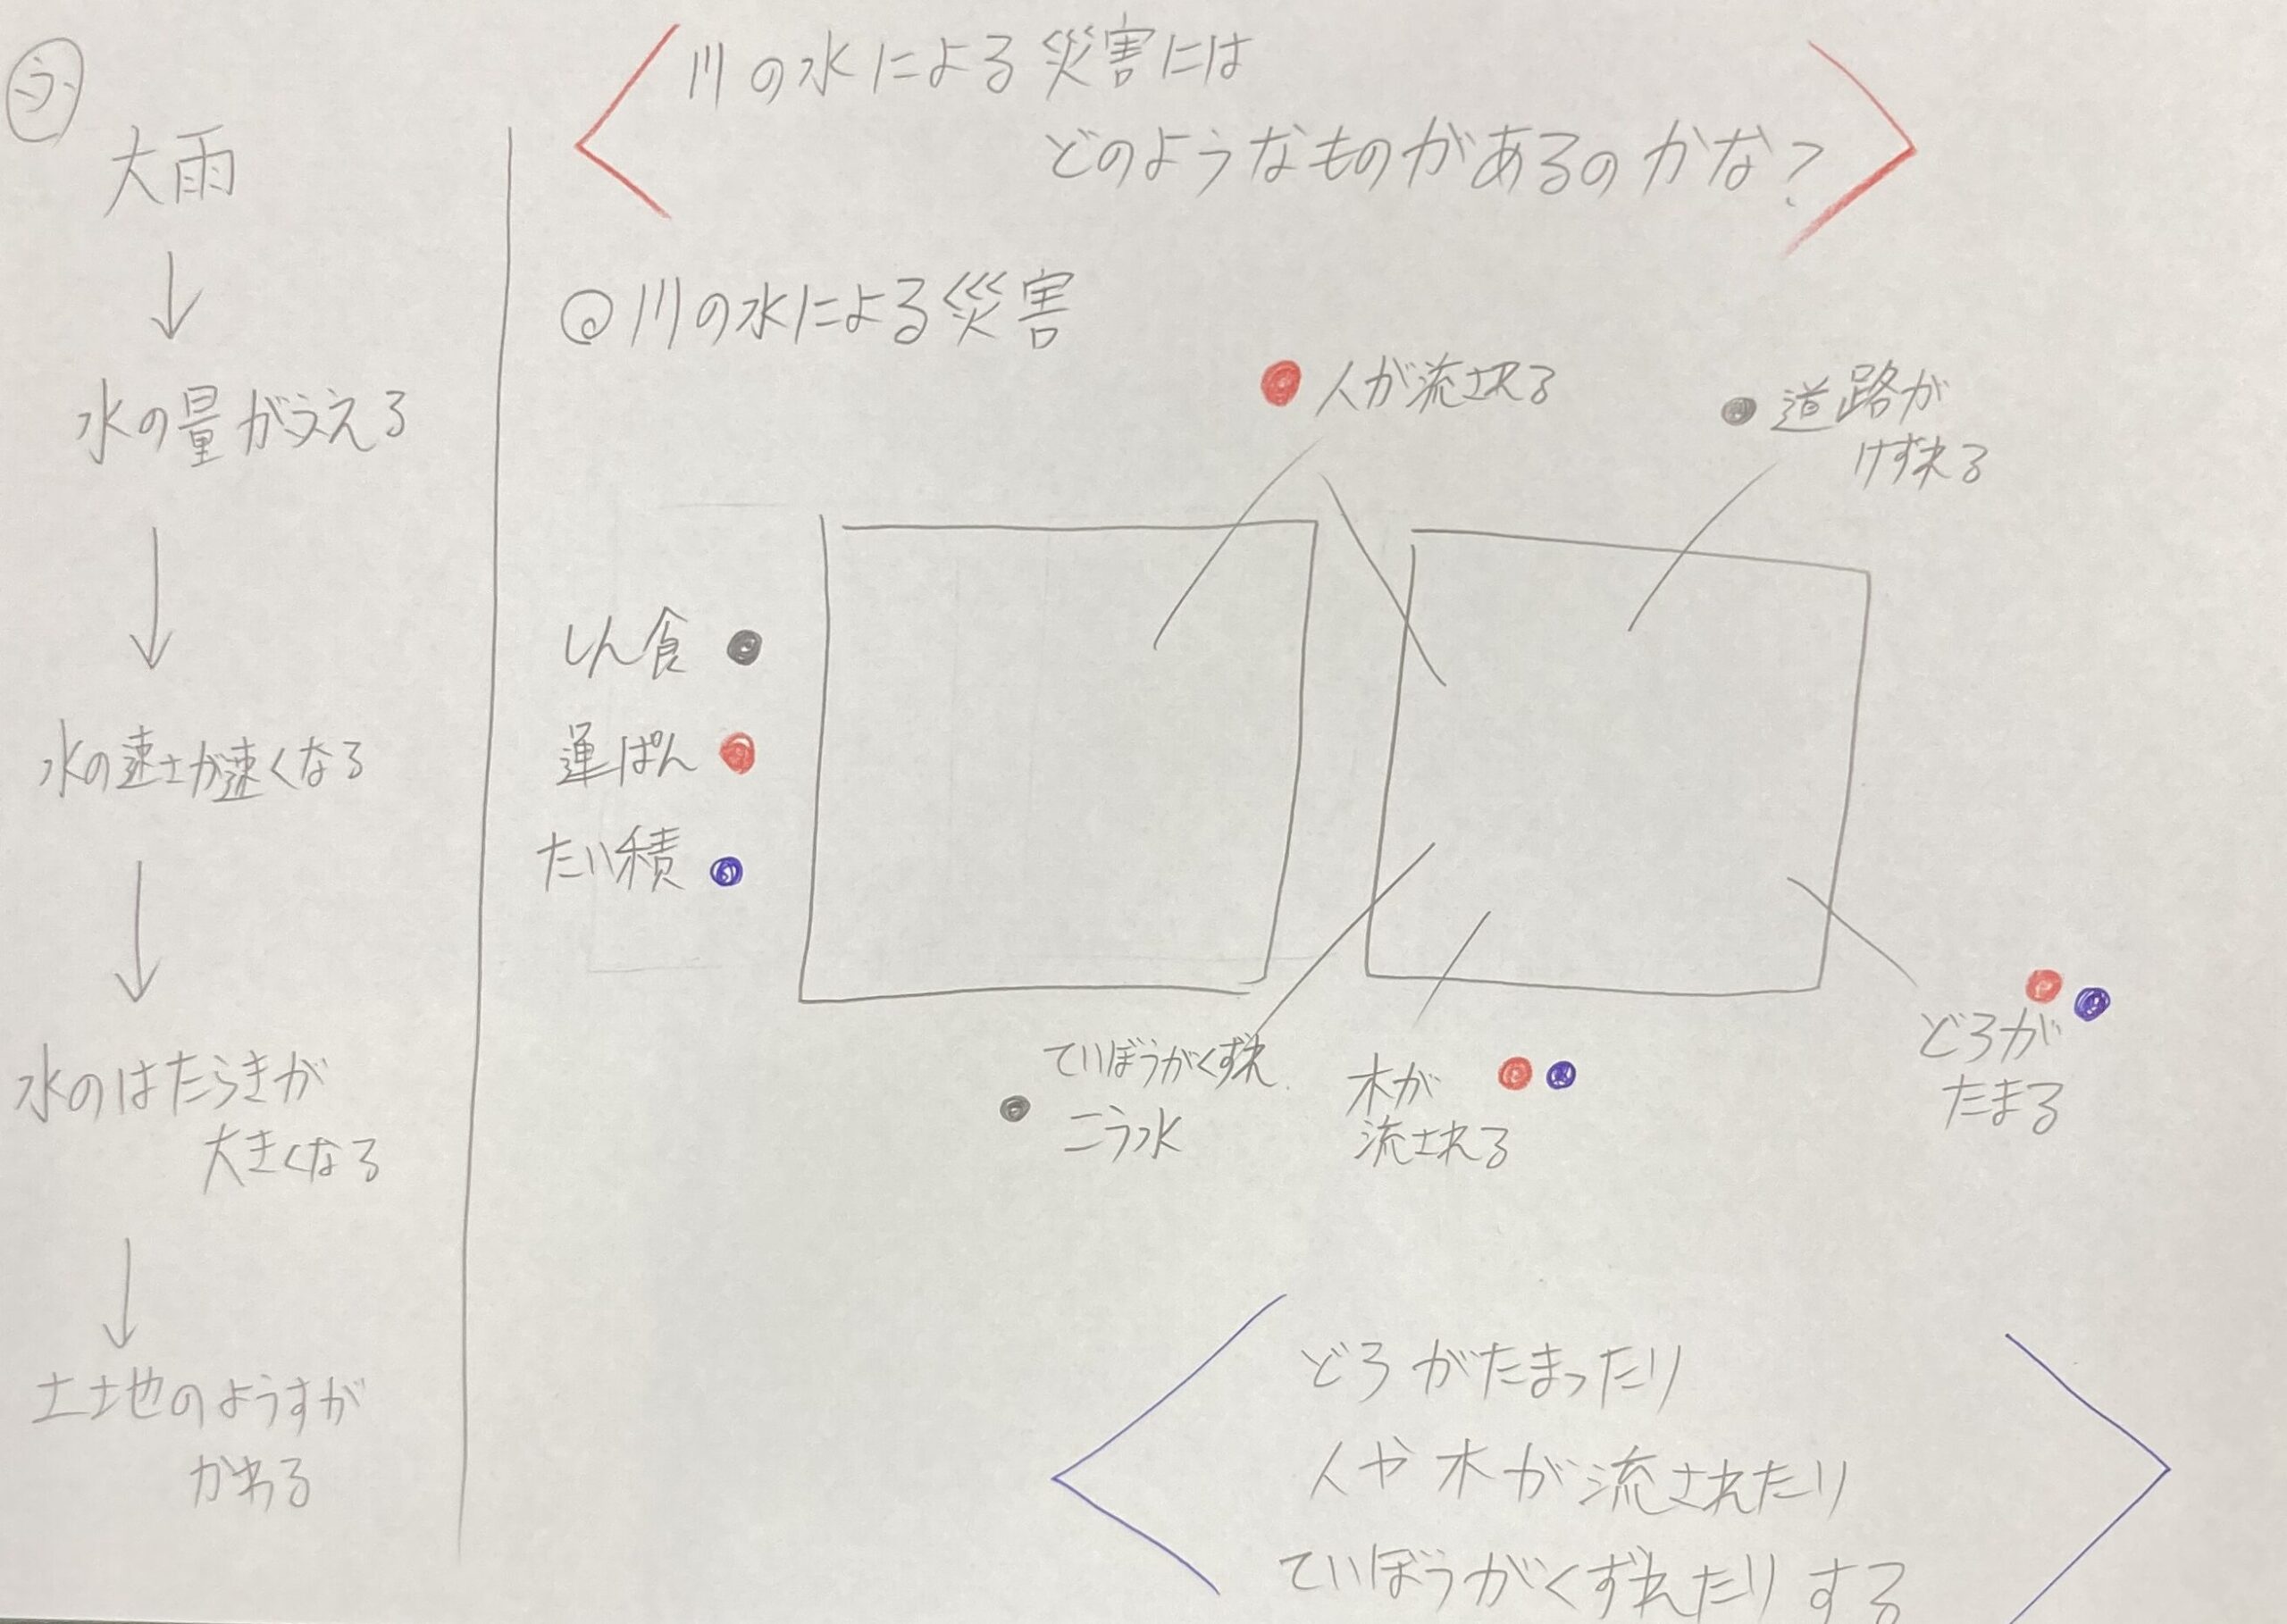 ふ
大雨
↓
水の量がふえる
↓
水の速さが速くなる
↓
水のはたらきが
大きくなる
↓
土地のようすが
かわる
川の水による災害には
どのようなものがあるのかな?
◎川の水による災害
人が流される
道路が
けずれる
しん食
運ぱん
たい積
ていぼうがくずれ
こう水
木が
流される
どろが
たまる
どろがたまったり
人や木が流されたり
ていぼうがくずれたりする